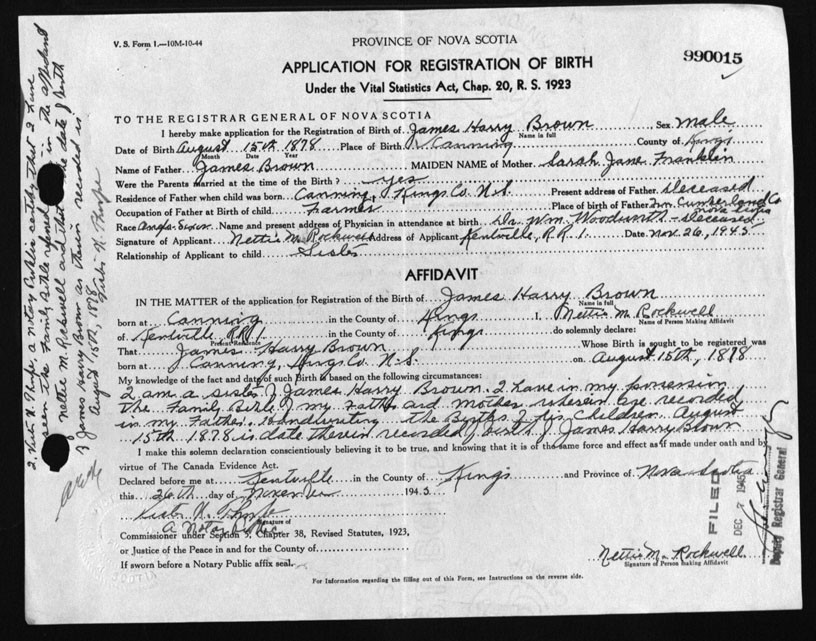 V. S. Form 1.—10M-10-44
PROVINCE OF NOVA SCOTIA
990015
APPLICATION FOR REGISTRATION OF BIRTH
Under the Vital Statistics Act, Chap. 20, R. S. 1923
TO THE REGISTRAR GENERAL OF NOVA SCOTIA
I hereby make application for the Registration of Birth of James Harry Brown Sex male
Name in full
Date of Birth August 15th 1878 Place of Birth Canning County of Kings
Month Date Year
Name of Father James Brown MAIDEN NAME of Mother Sarah Jane Franklin
Were the Parents married at the time of the Birth? yes
Residence of Father when child was born Canning, Kings Co. N.S. Present address of Father Deceased
Occupation of Father at Birth of child Farmer Place of birth of Father Cumberland Co Nova Scotia
Race Anglo-Saxon Name and present address of Physician in attendance at birth Dr. Wm. Woodworth - deceased
Signature of Applicant Nettie M. Rockwell Address of Applicant Kentville, R.R 1. Date Nov. 26, 1945
Relationship of Applicant to child Sister
AFFIDAVIT
IN THE MATTER of the application for Registration of the Birth of James Harry Brown
Name in full
born at Canning in the County of Kings I, Nettie M. Rockwell
Name of Person Making Affidavit
of Kentville R.R. 1 in the County of Kings do solemnly declare:
Present Residence
That James Harry Brown Whose Birth is sought to be registered was
born at Canning, Kings Co. N.S. on August 15th, 1878
My knowledge of the fact and date of such Birth is based on the following circumstances:
I am a sister of James Harry Brown. I have in my possession
the Family Bible of my Father and Mother wherein are recorded
in my Father's handwriting the Births of his children. August
15th 1878 is date therein recorded of birth of James Harry Brown
I make this solemn declaration conscientiously believing it to be true, and knowing that it is of the same force and effect as if made under oath and by
virtue of The Canada Evidence Act.
Declared before me at Kentville in the County of Kings and Province of Nova Scotia
this 26th day of November 1945
A Notary Public
Signature of
Commissioner under Section 5, Chapter 38, Revised Statutes, 1923,
or Justice of the Peace in and for the County of
If sworn before a Notary Public affix seal.
Nettie M. Rockwell
Signature of Person making Affidavit
For Information regarding the filling out of this Form, see Instructions on the reverse side.
FILED
DEC 7 1945
Deputy Registrar General
a Notary Public certify that I have
seen the Family Bible referred to in the affidavit
Nettie M. Rockwell and that the date of birth
of James Harry Brown as therein recorded is
August 15th, 1878